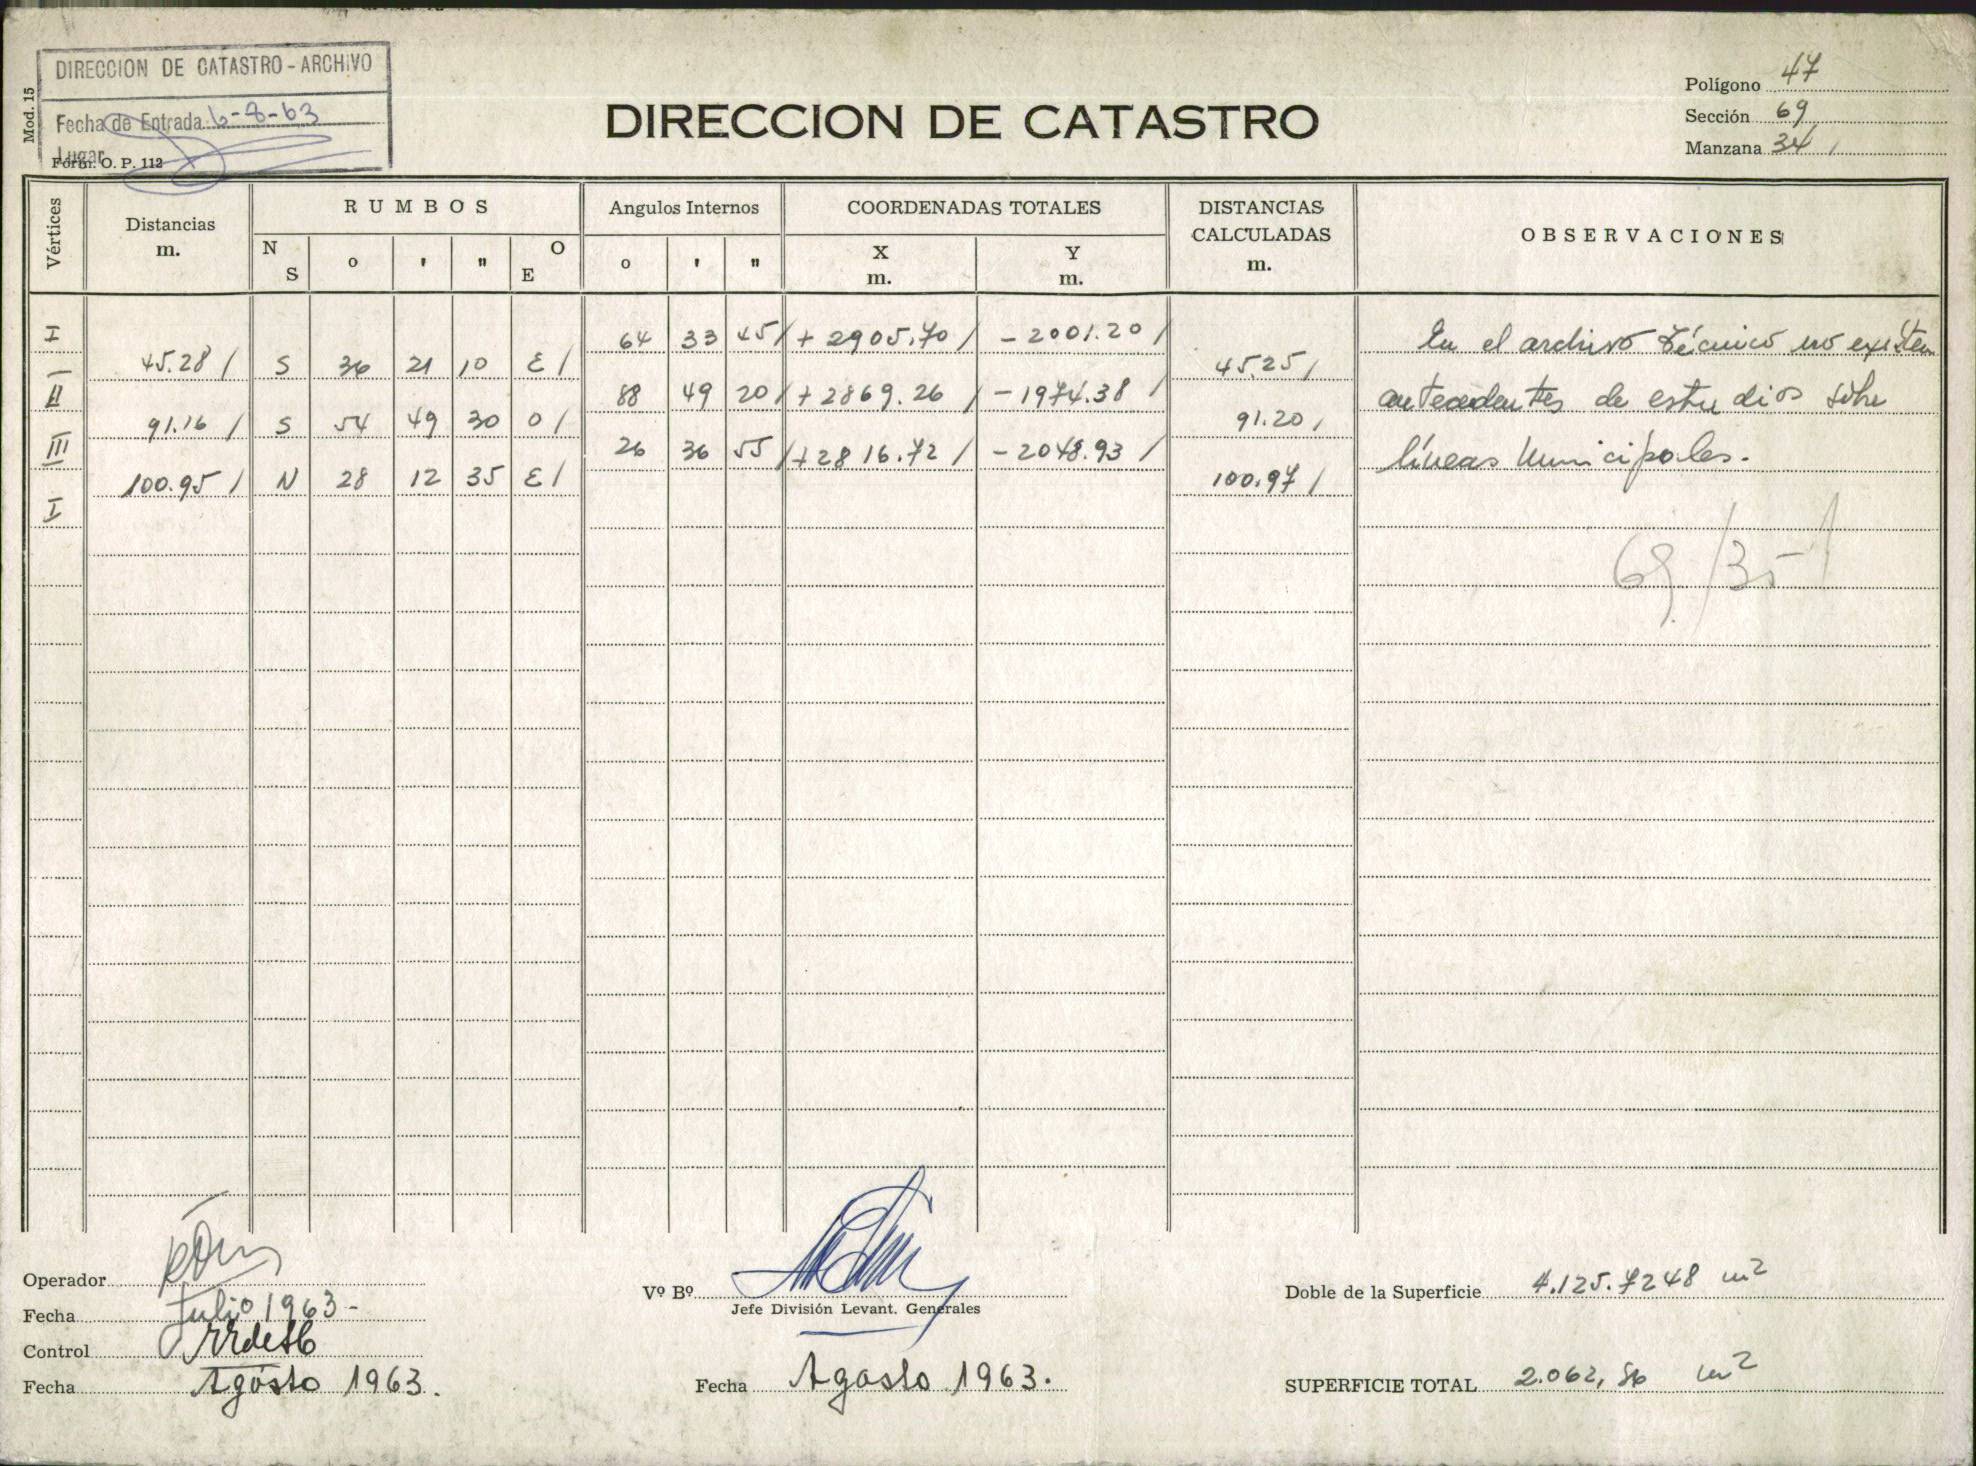 DIRECCION DE CATASTRO - ARCHIVO
Fecha de Entrada 6-8-63
Lugar
Mod. 15
Form. O. P. 112
DIRECCION DE CATASTRO
Polígono 47
Sección 69
Manzana 34
Vértices
Distancias
m.
RUMBOS
N
S
o ' "
O
E
Angulos Internos
o ' "
COORDENADAS TOTALES
X
m.
Y
m.
DISTANCIAS
CALCULADAS
m.
OBSERVACIONES
I 64 33 45 / + 2905.70 / - 2001.20 /
45.28 / S 36 21 10 E / 45.25 /
II 88 49 20 / + 2869.26 / - 1974.38 /
91.16 / S 54 49 30 O / 91.20 /
III 26 36 55 / + 2816.72 / - 2048.93 /
100.95 / N 28 12 35 E / 100.97 /
I
En el archivo técnico no existen
antecedentes de estudios sobre
líneas Municipales.
69/35
Operador
Fecha Julio 1963 -
Control
Fecha Agosto 1963.
Vº Bº
Jefe División Levant. Generales
Fecha Agosto 1963.
Doble de la Superficie 4.125.7248 m2
SUPERFICIE TOTAL 2.062,86 m2